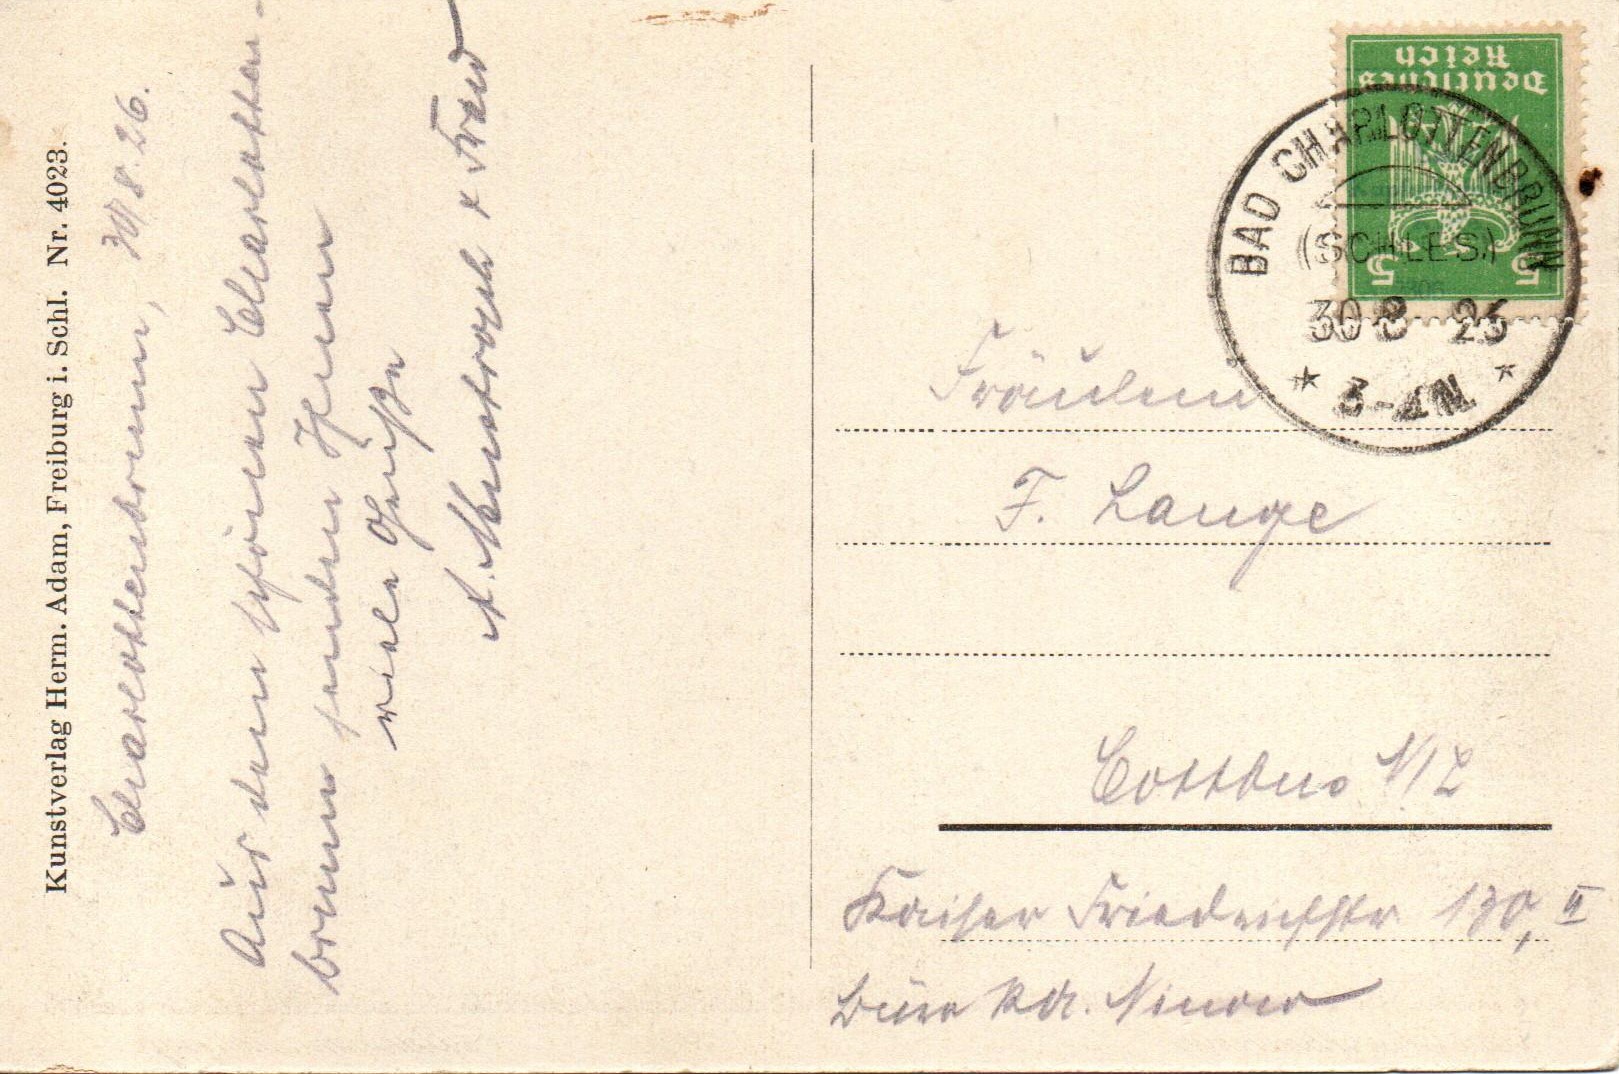 Kunstverlag Herm. Adam, Freiburg i. Schl. Nr. 4023.
Charlottenbrunn, 30/8.26.
Aus dem schönen Charlotten-
brunn senden Ihnen
viele Grüße
u. Frau
Deutsches
Reich
5 5
BAD CHARLOTTENBRUNN
(SCHLES.)
30 8 26
3-4 N
Fräulein
F. Lange
Cottbus N/L
Kaiser Friedrichstr 130, II